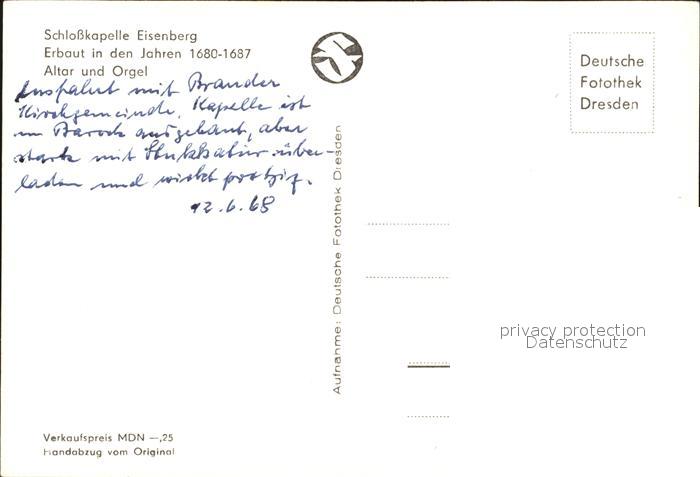 Schloßkapelle Eisenberg
Erbaut in den Jahren 1680-1687
Altar und Orgel
Ausfahrt mit Brander
Kirchgemeinde. Kapelle ist
im Barock ausgebaut, aber
stark mit Stukkatur über-
laden und wirkt protzig.
12.6.68
Deutsche
Fotothek
Dresden
Aufnahme: Deutsche Fotothek Dresden
privacy protection
Datenschutz
Verkaufspreis MDN —,25
Handabzug vom Original